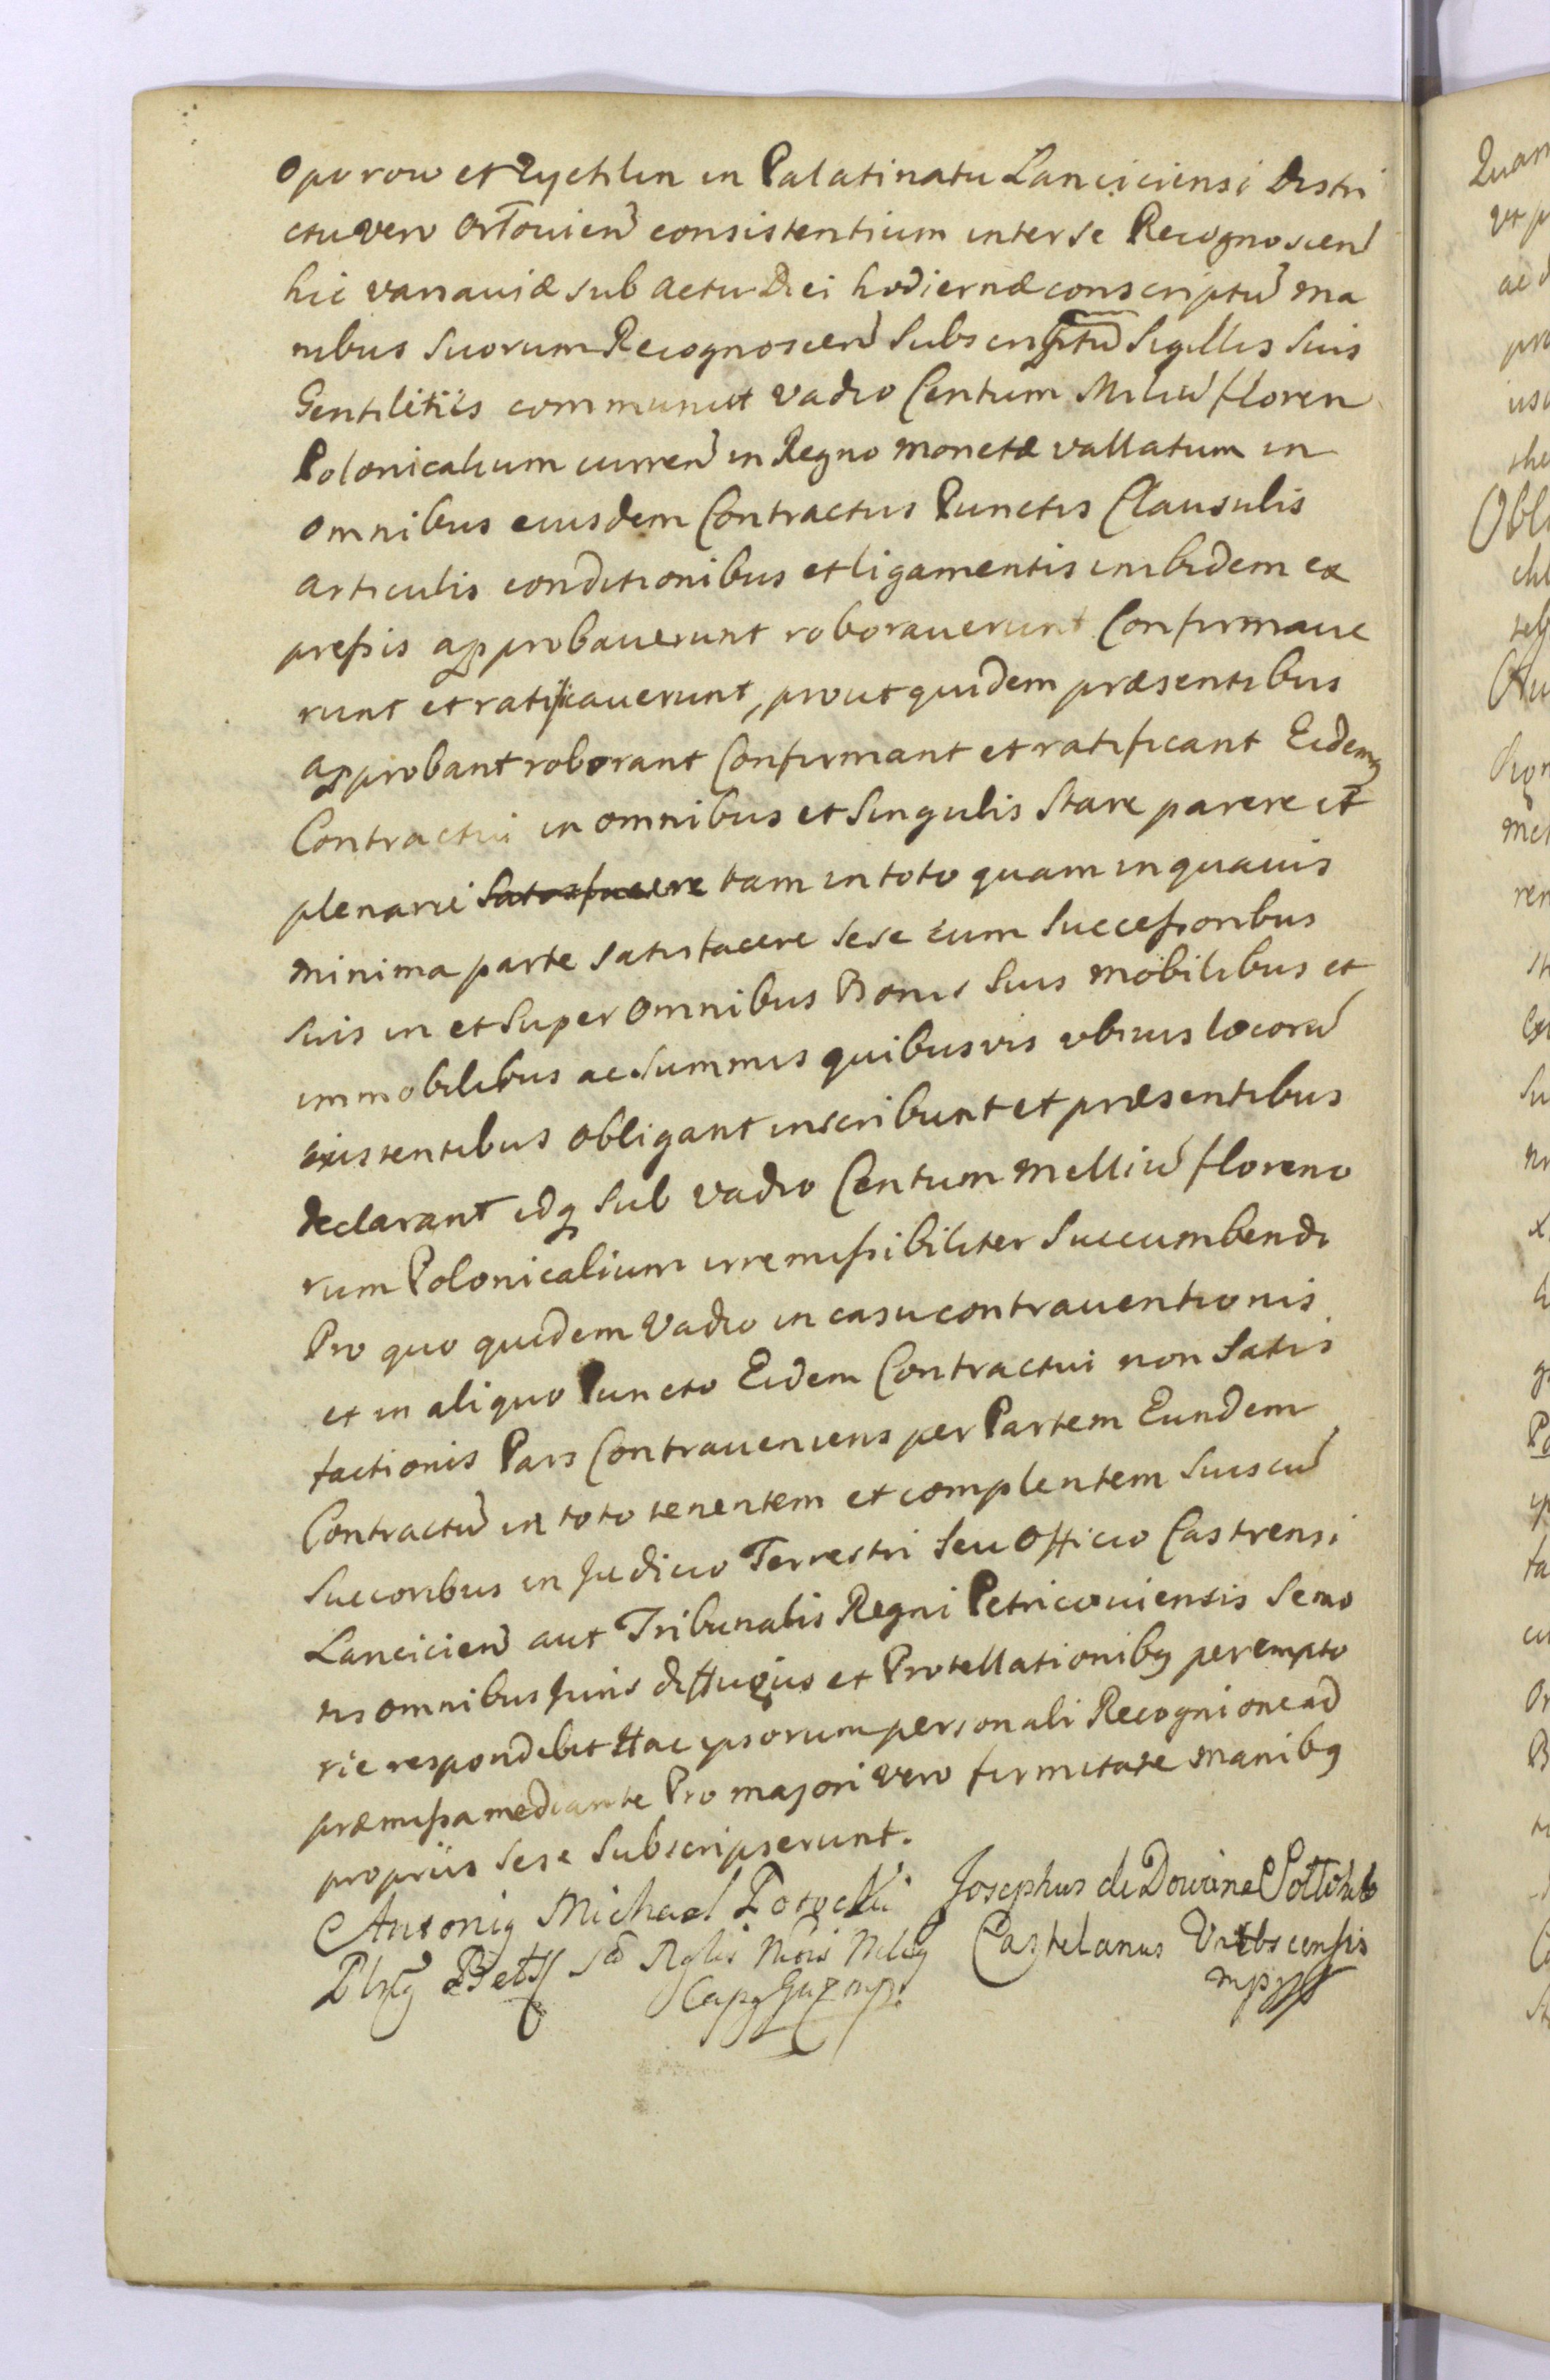 Oporow et Zychlin in Palatinatu Lanciciensi Distri
ctu vero Orłovien consistentium inter se Recognoscen
hic Varsaviæ sub actu Diei hodiernæ conscriptu Ma
nibus Suorum Recognoscen Subscriptu Sigillis Suis
Gentilitiis communitt Vadio Centum Miliu floren
Polonicalium curren in Regno monetæ vallatum in
omnibus eiusdem Contractus Punctis Clausulis
articulis conditionibus et ligamentis inibidem ex
pressis approbaverunt roboraverunt Confirmave
runt et ratificaverunt, prout quidem præsentibus
approbant roborant Confirmant et ratificant Eidemq
Contractui in omnibus et Singulis Stare parere et
plenarie Satisfacere tam in toto quam in quavis
minima parte satisfacere sese cum Successoribus
Suis in et Super omnibus Bonis Suis mobilibus et
immobilibus ac Summis quibusvis ubivis locoru
existentibus obligant inscribunt et præsentibus
declarant idq sub vadio Centum Milliu floreno
rum Polonicalium irremissibiliter Succumbendi
Pro quo quidem Vadio in casu contraventionis
et in aliquo Puncto Eidem Contractui non Satis
factionis Pars Contraveniens per Partem Eundem
Contractu in toto tenentem et complentem Suis cu
Succoribus in Judicio Terrestri Seu Officio Castrensi
Lancicien aut Tribunalis Regni Petricoviensis Semo
tis omnibus Juris diffugiis et Protellationibq perempto
rie respondebit Hac ipsorum personali Recognione ad
præmissa mediante Pro majori vero firmitate Manibq
propriis sese Subscripserunt.
Antoniq Michael Potocki Josephus de Dowaina Sołłohub
Pltq Bełz Sd Rglis Ncis Castelanus Vitbscensis
Capq mp. mpp